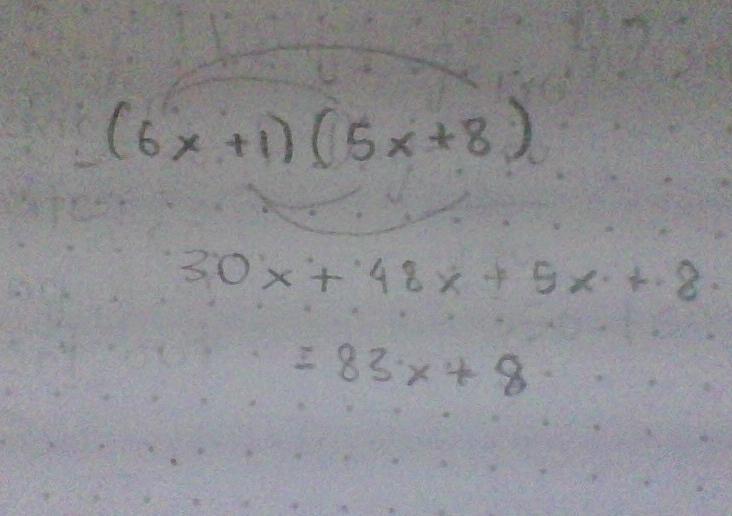 (6x+1)(5x+8)
30x + 48x + 5x + 8
= 83x + 8